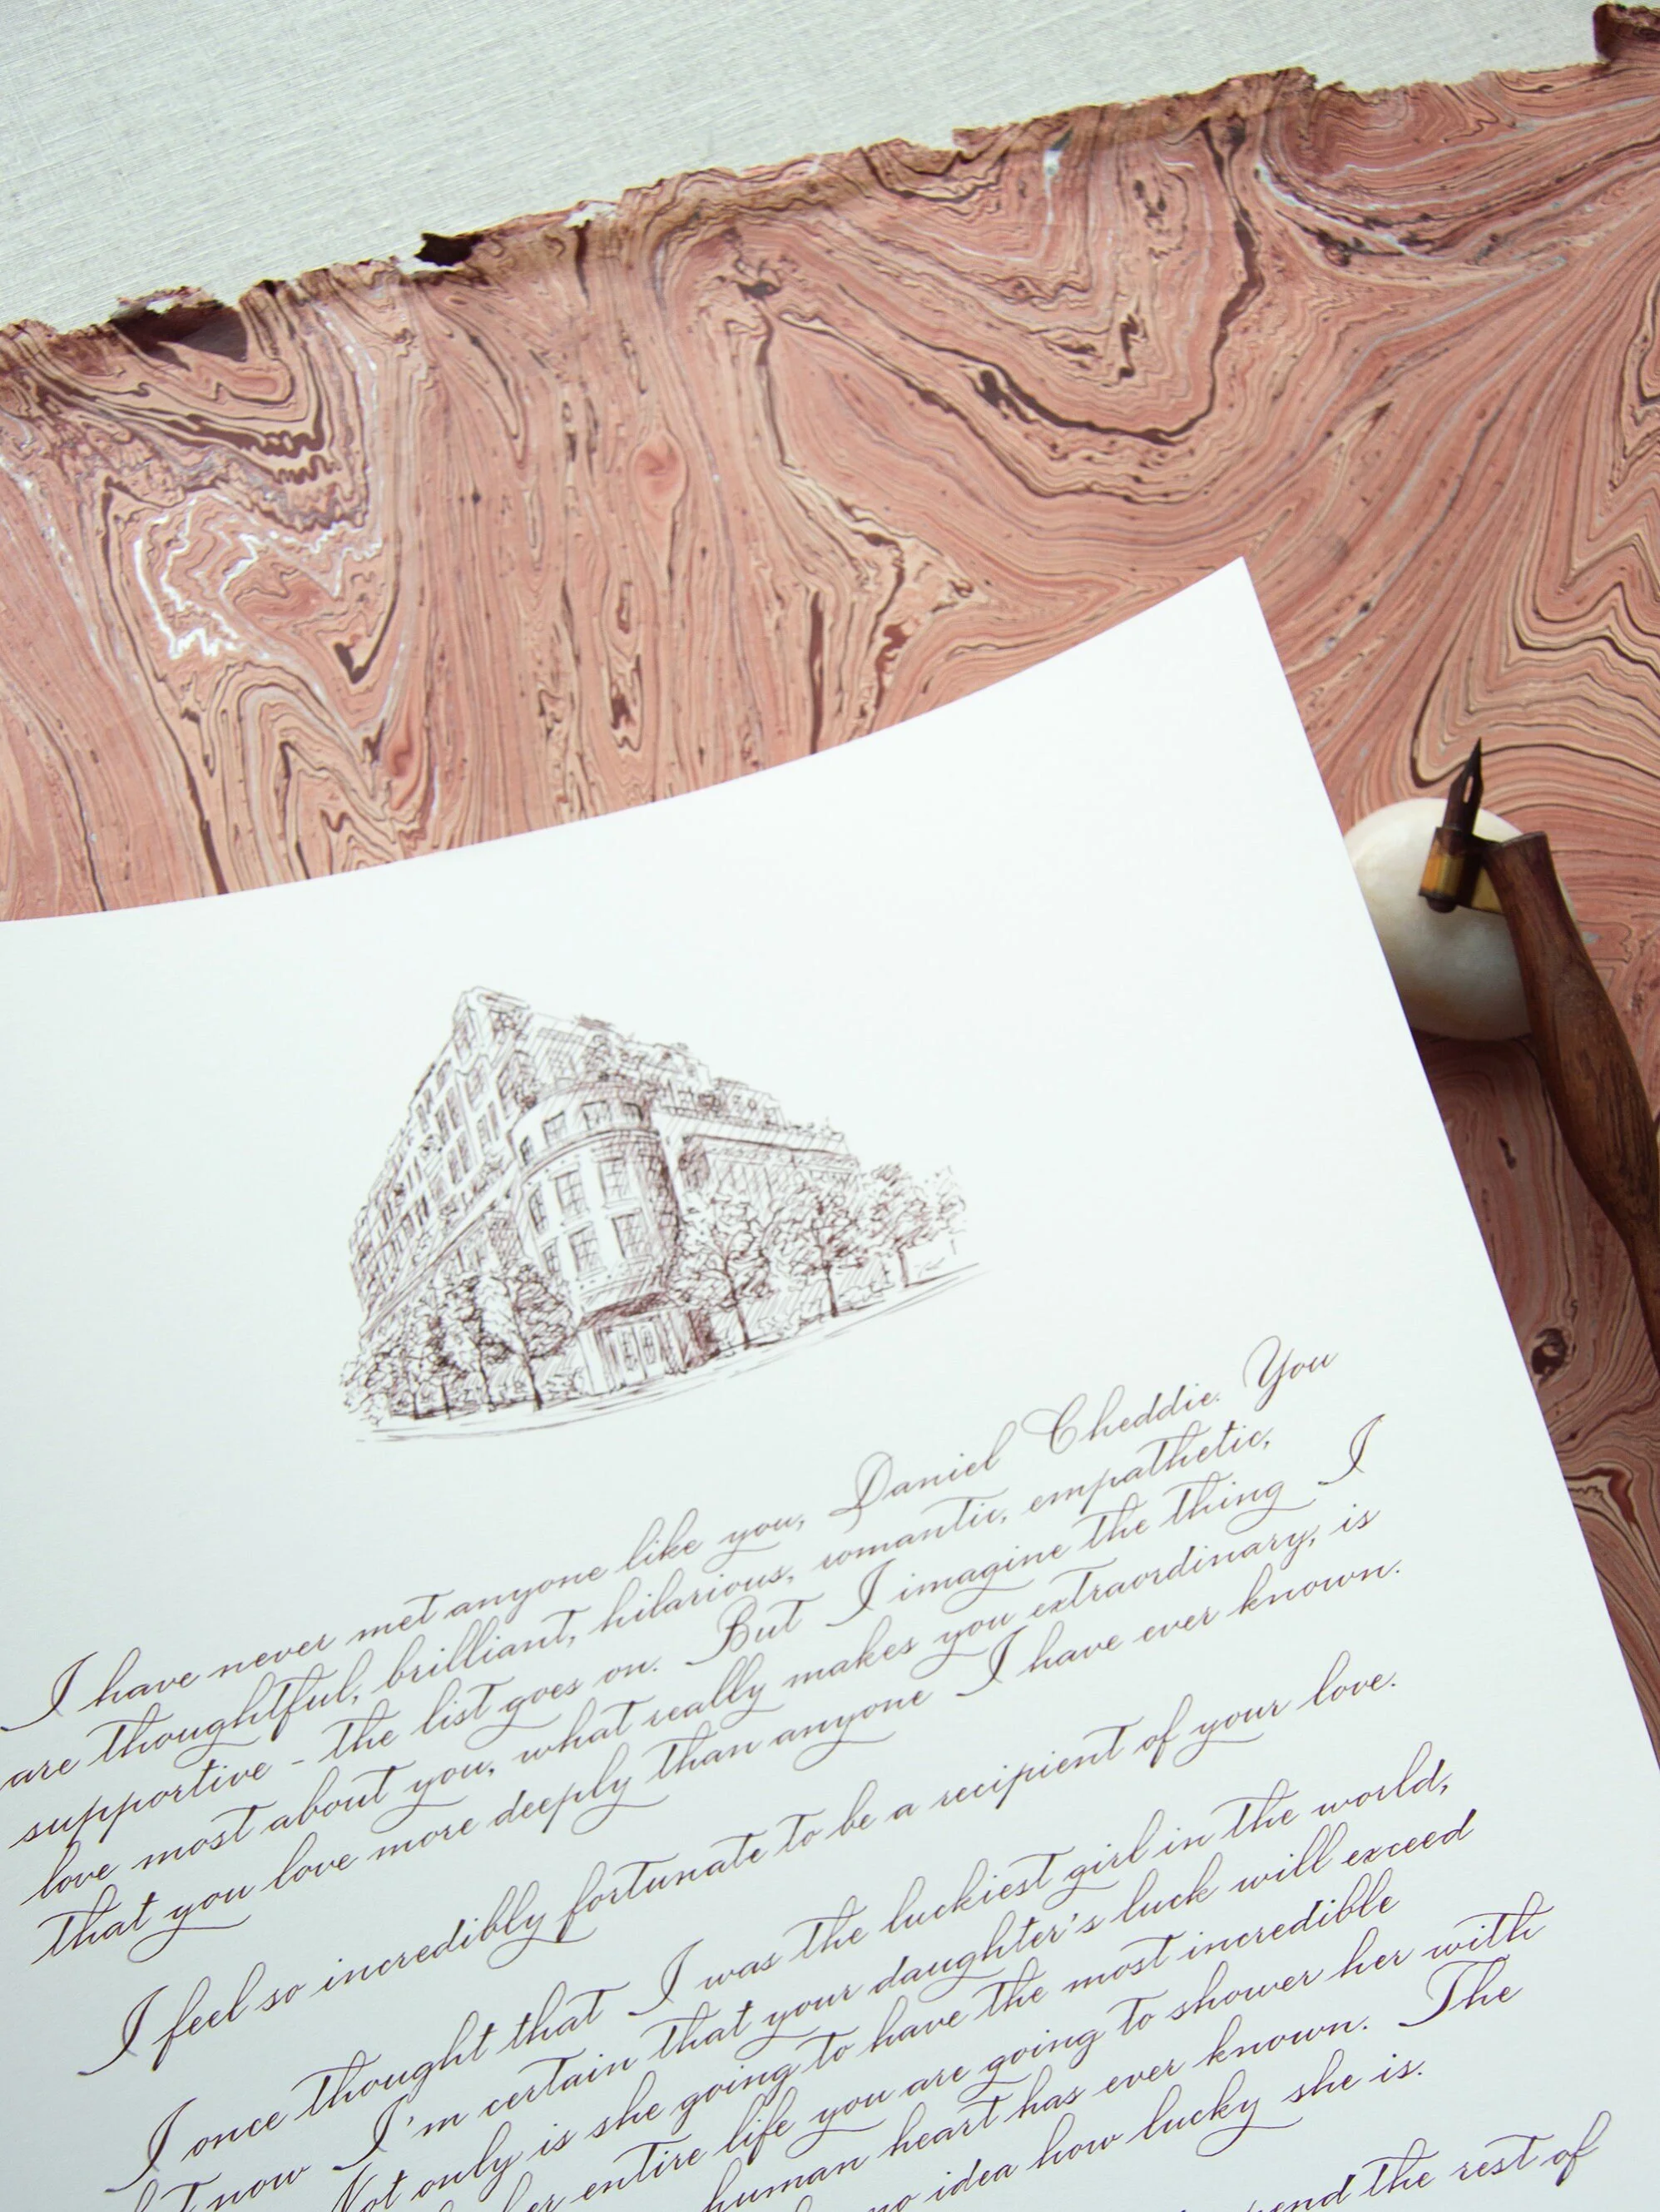 I have never met anyone like you, Daniel Cheddie. You
are thoughtful, brilliant, hilarious, romantic, empathetic,
supportive - the list goes on. But I imagine the thing I
love most about you, what really makes you extraordinary, is
that you love more deeply than anyone I have ever known.
I feel so incredibly fortunate to be a recipient of your love.
I once thought that I was the luckiest girl in the world,
now I'm certain that your daughter's luck will exceed
Not only is she going to have the most incredible
her entire life you are going to shower her with
human heart has ever known. The
no idea how lucky she is.
the rest of